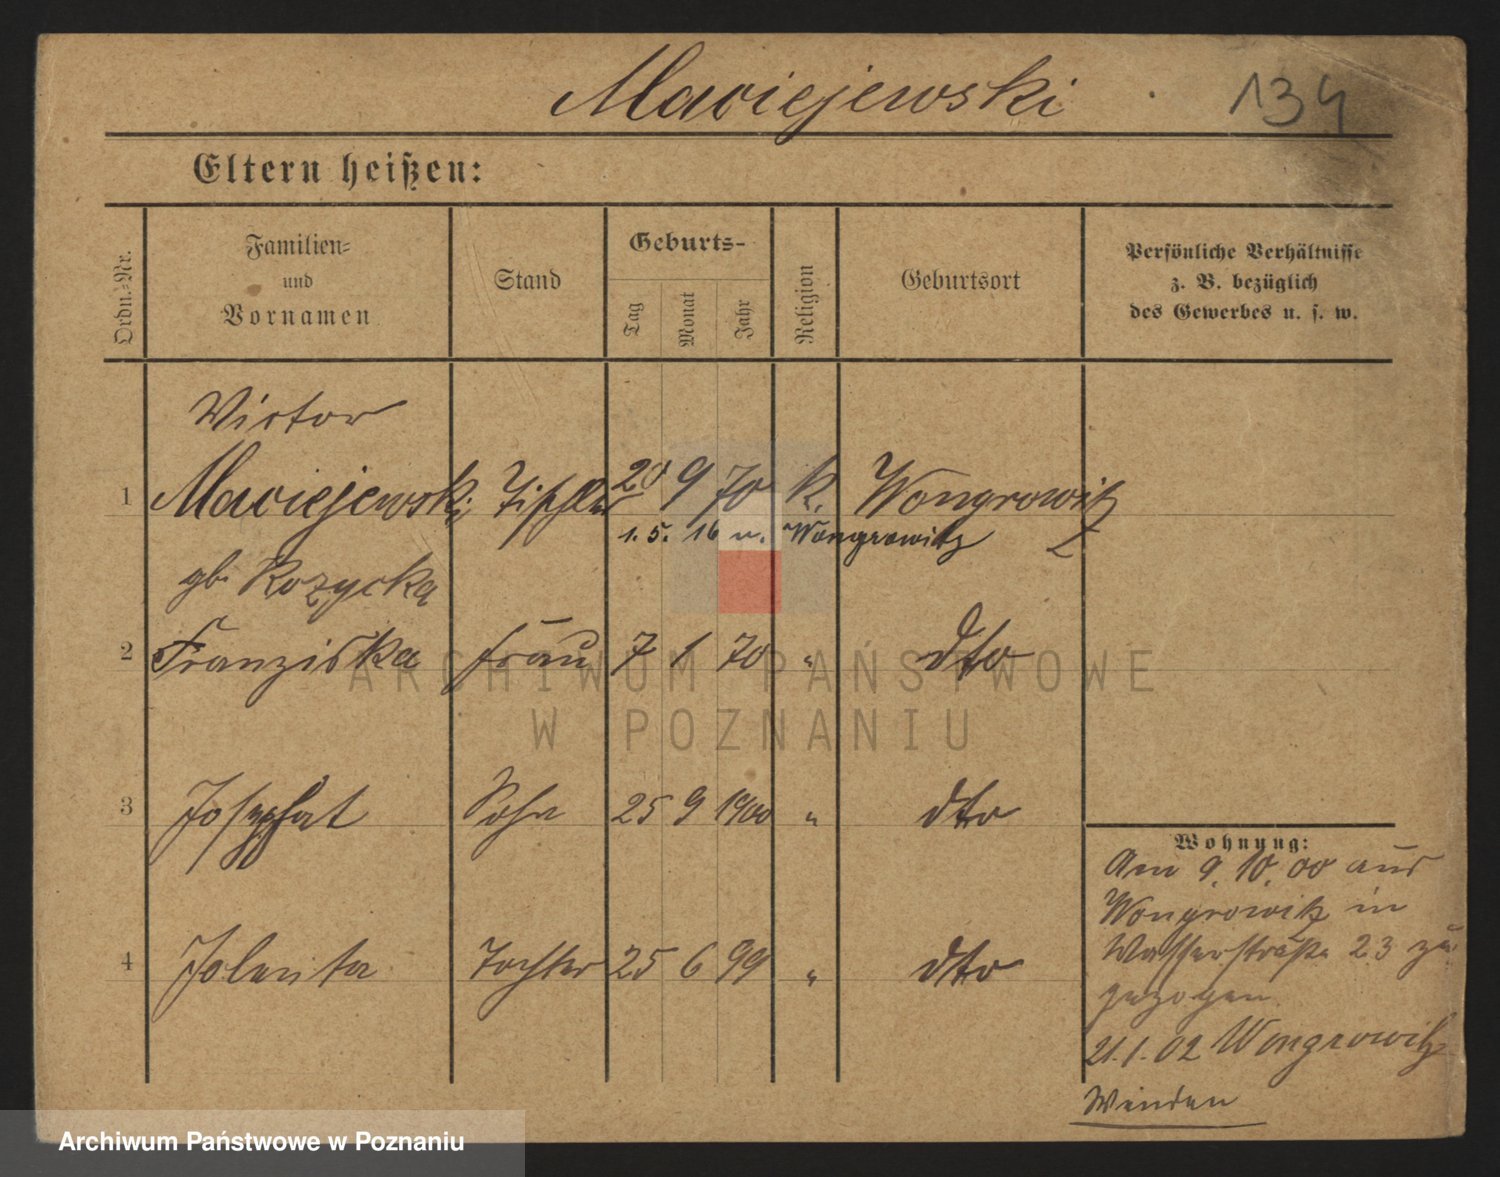 Maciejewski
134
Eltern heißen:
Ordn.-Nr.
Familien-
und
Vornamen
Stand
Geburts-
Tag
Monat
Jahr
Religion
Geburtsort
Persönliche Verhältnisse
z. B. bezüglich
des Gewerbes u. s. w.
Victor
1 Maciejewski Tischler 20 9 70 k. Wongrowitz
1. 5. 16 n. Wongrowitz
gb. Rozycka
2 Franziska Frau 7 1 70 " dto
3 Josephat Sohn 25 9 1900 " dto
4 Jolenta Tochter 25 6 99 " dto
Wohnung:
Am 9. 10. 00 aus
Wongrowitz in
Wasserstraße 23 zu
gezogen
21.1.02 Wongrowitz
ARCHIWUM PAŃSTWOWE
W POZNANIU
Archiwum Państwowe w Poznaniu